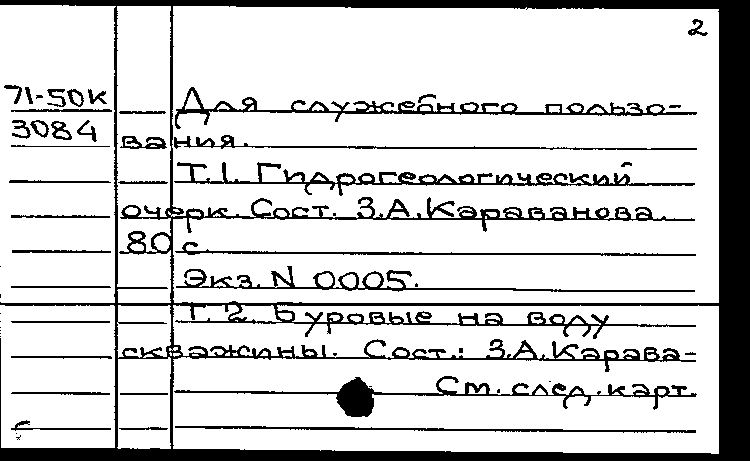 2
71-50к Для служебного пользо-
3084 вания.
Т.1. Гидрогеологический
очерк. Сост. З.А.Караванова.
80 с.
Экз. N 0005.
Т. 2. Буровые на воду
скважины. Сост.: З.А.Карава-
См. след. карт.